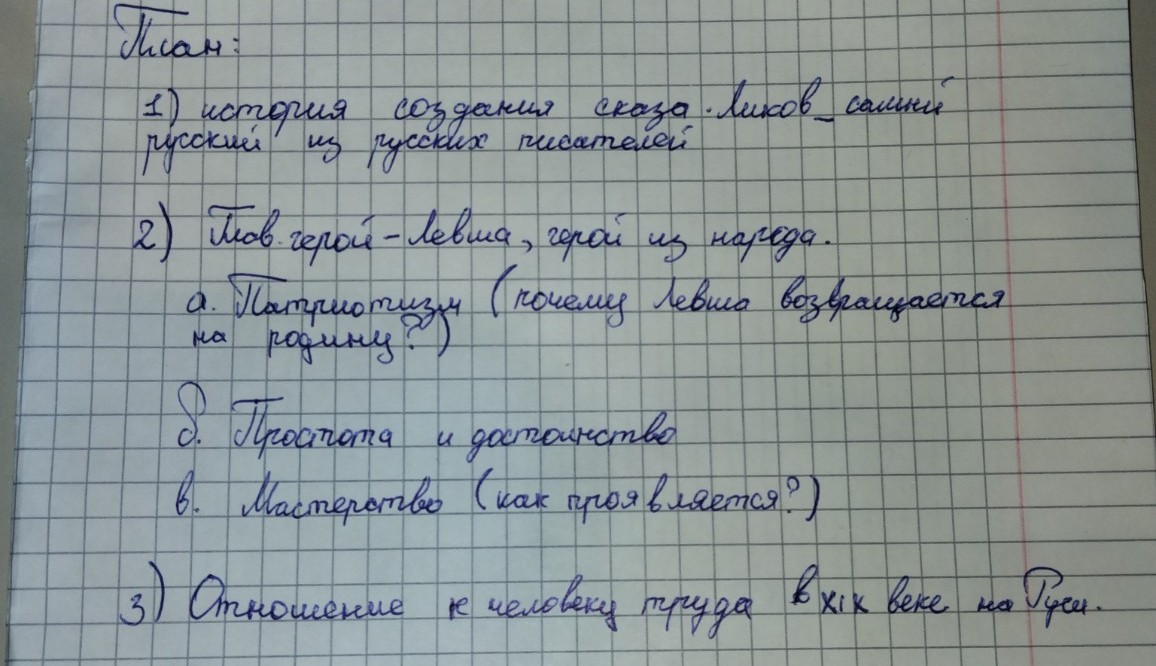 План:
1) история создания сказа. Лисков_самый
русский из русских писателей
2) Глав. герой - Левша, герой из народа.
а. Патриотизм (почему Левша возвращается
на родину?)
б. Простота и достоинство
в. Мастерство (как проявляется?)
3) Отношение к человеку труда в XIX веке на Руси.